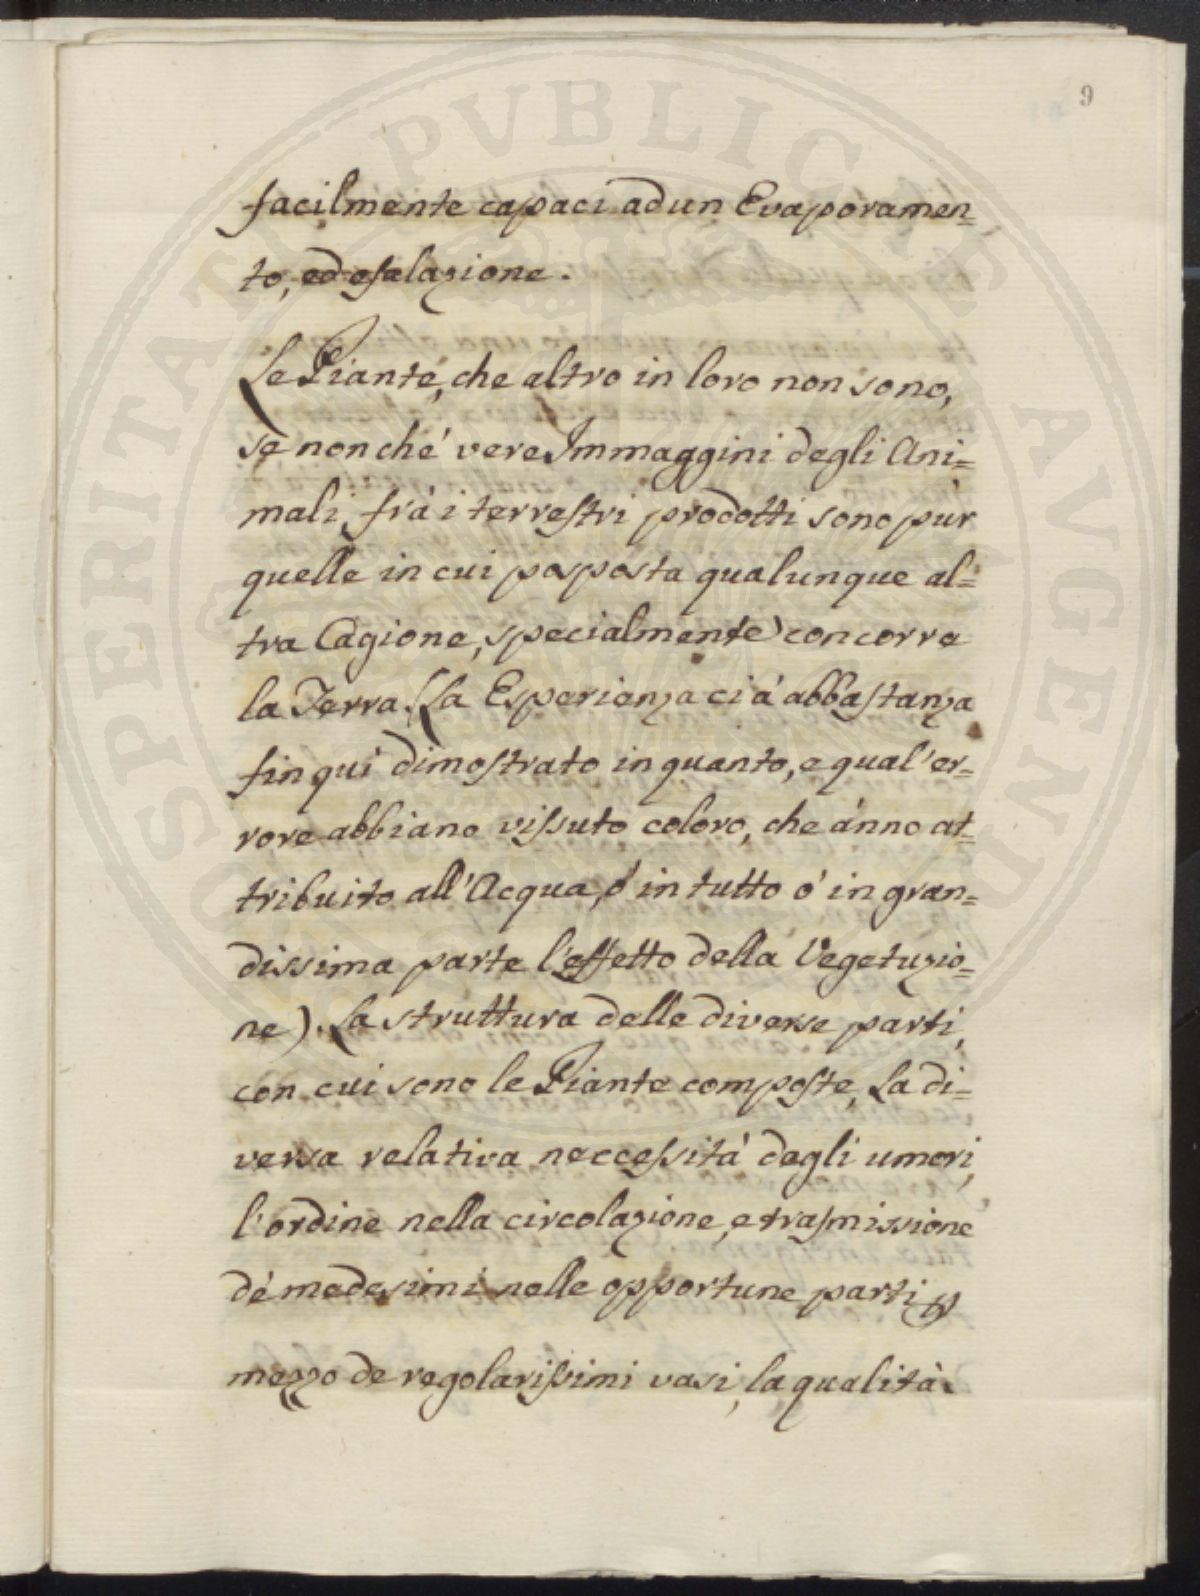 9
facilmente capaci ad un Evaporamen=
to, ed esalazione.
Le Piante, che altro in loro non sono,
se non ché vere Immaggini degli Ani=
mali, frà i terrestri prodotti sono pùr
quelle in cui posposta qualunque al=
tra Cagione, specialmente concorre
la Terra. (La Esperienza ci à abbastanza
fin quì dimostrato in quanto, e qual' er=
rore abbiano vissuto coloro, che ànno at=
tribuito all'Acqua, ò in tutto ò in gran=
dissima parte l'effetto della Vegetazio=
ne). La struttura delle diverse parti,
con cui sono le Piante composte, La di=
versa relativa neccessità degli umori,
l'ordine nella circolazione, e trasmissione
dé medesimi nelle opportune parti p
mezzo de regolarissimi vasi, la qualità
PROSPERITATI PVBLICAE AVGENDAE